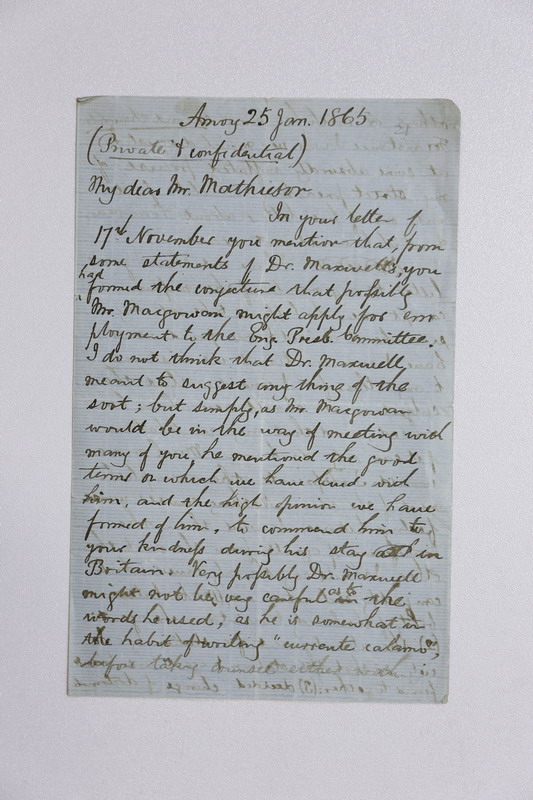 Amoy 25 Jan. 1865
(Private & confidential)
My dear Mr. Mathieson
In your letter of
17th November you mention that, from
some statements of Dr. Maxwell's, you
had
formed the conjecture that possible
Mr. Macgowan might apply for em
ployment to the Eng. Presb. Committee.
I do not think that Dr. Maxwell
meant to suggest any thing of the
sort; but simply, as Mr. Macgowan
would be in the way of meeting with
many of you he mentioned the good
terms on which we have lived with
him, and the high opinion we have
formed of him, to commend him to
your kindness during his stay in
Britain. Very possibly Dr. Maxwell
might not be very careful as to the
words he used; as he is somewhat in
the habit of writing "currente calamo",
before taking counsel either